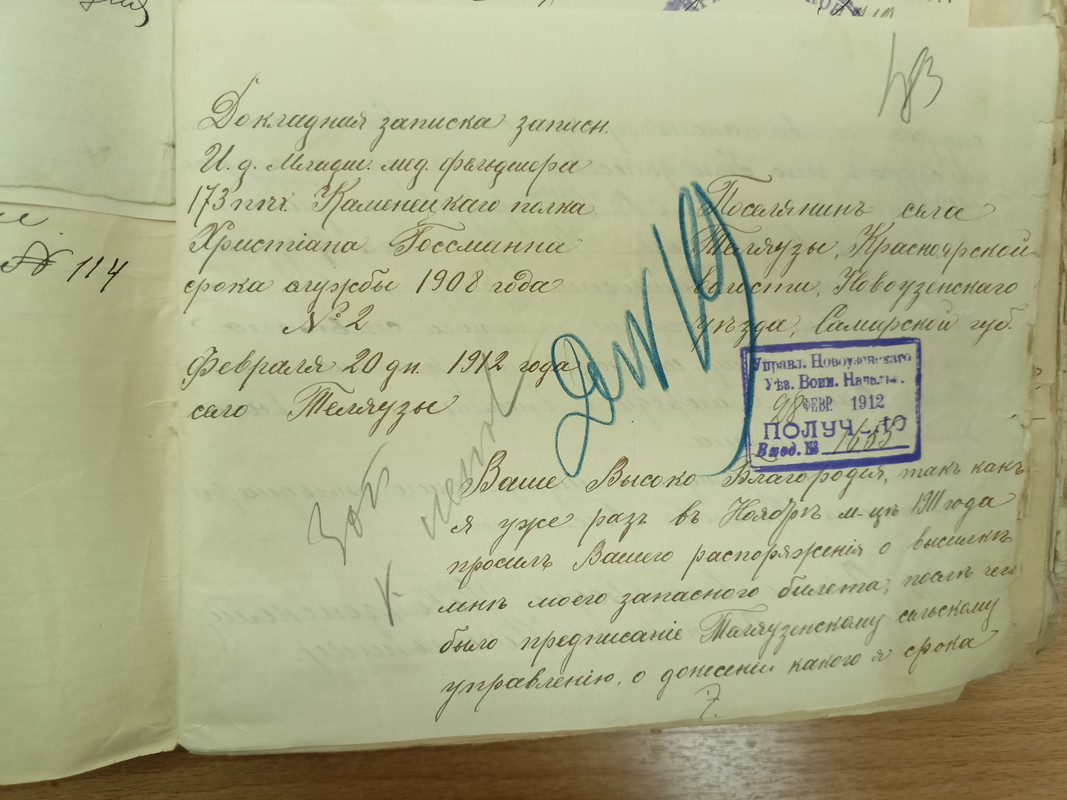 483
Докладная записка запасн.
И. д. Младш. мед. фельдшера
173 пѣх. Каменецкаго полка
Христiана Госсманна
срока службы 1908 года
№ 2
Февраля 20 дн. 1912 года
село Теляузы
Поселянинъ села
Теляузы, Красноярской
волости, Новоузенскаго
уѣзда, Самарской губ.
Управл. Новоузенскаго
Уѣз. Воин. Началь.
28 ФЕВР 1912
ПОЛУЧЕНО
Вход. № 1655
Ваше Высоко Благородiя, такъ какъ
я уже разъ въ Ноябрѣ м-цѣ 1911 года
просилъ Вашего распоряженiя о высылкѣ
мнѣ моего запасного билета, послѣ чего
было предписанiе Теляузенскому сельскому
управленiю, о донесенiи какого я срока
№ 114